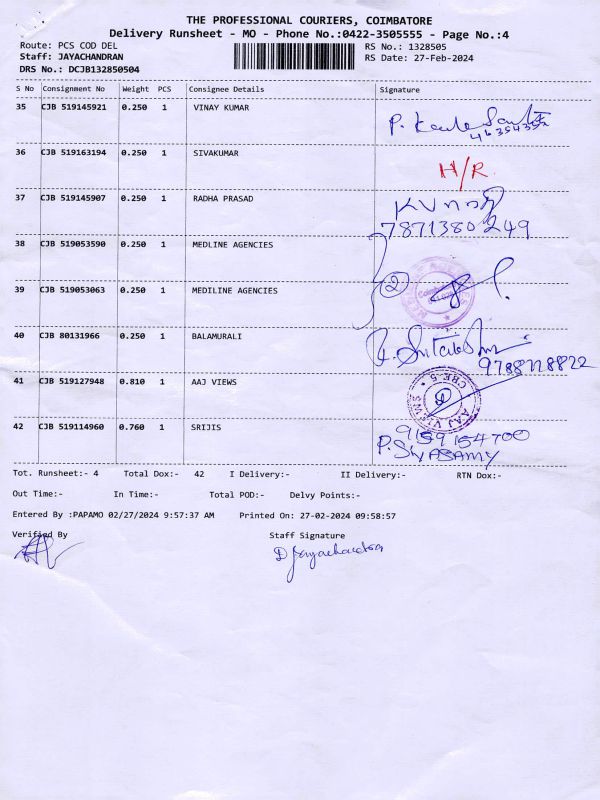 THE PROFESSIONAL COURIERS, COIMBATORE
Delivery Runsheet - MO - Phone No.:0422-3505555 - Page No.:4
Route: PCS COD DEL RS No.: 1328505
Staff: JAYACHANDRAN RS Date: 27-Feb-2024
DRS No.: DCJB132850504
S No Consignment No Weight PCS Consignee Details Signature
35 CJB 519145921 0.250 1 VINAY KUMAR
36 CJB 519163194 0.250 1 SIVAKUMAR H/R
37 CJB 519145907 0.250 1 RADHA PRASAD
7871380249
38 CJB 519053590 0.250 1 MEDLINE AGENCIES
2
39 CJB 519053063 0.250 1 MEDILINE AGENCIES
40 CJB 80131966 0.250 1 BALAMURALI
41 CJB 519127948 0.810 1 AAJ VIEWS
AAJ VIEWS
42 CJB 519114960 0.760 1 SRIJIS 9159154700
Tot. Runsheet:- 4 Total Dox:- 42 I Delivery:- II Delivery:- RTN Dox:-
Out Time:- In Time:- Total POD:- Delvy Points:-
Entered By :PAPAMO 02/27/2024 9:57:37 AM Printed On: 27-02-2024 09:58:57
Verified By Staff Signature
D Jayachandra